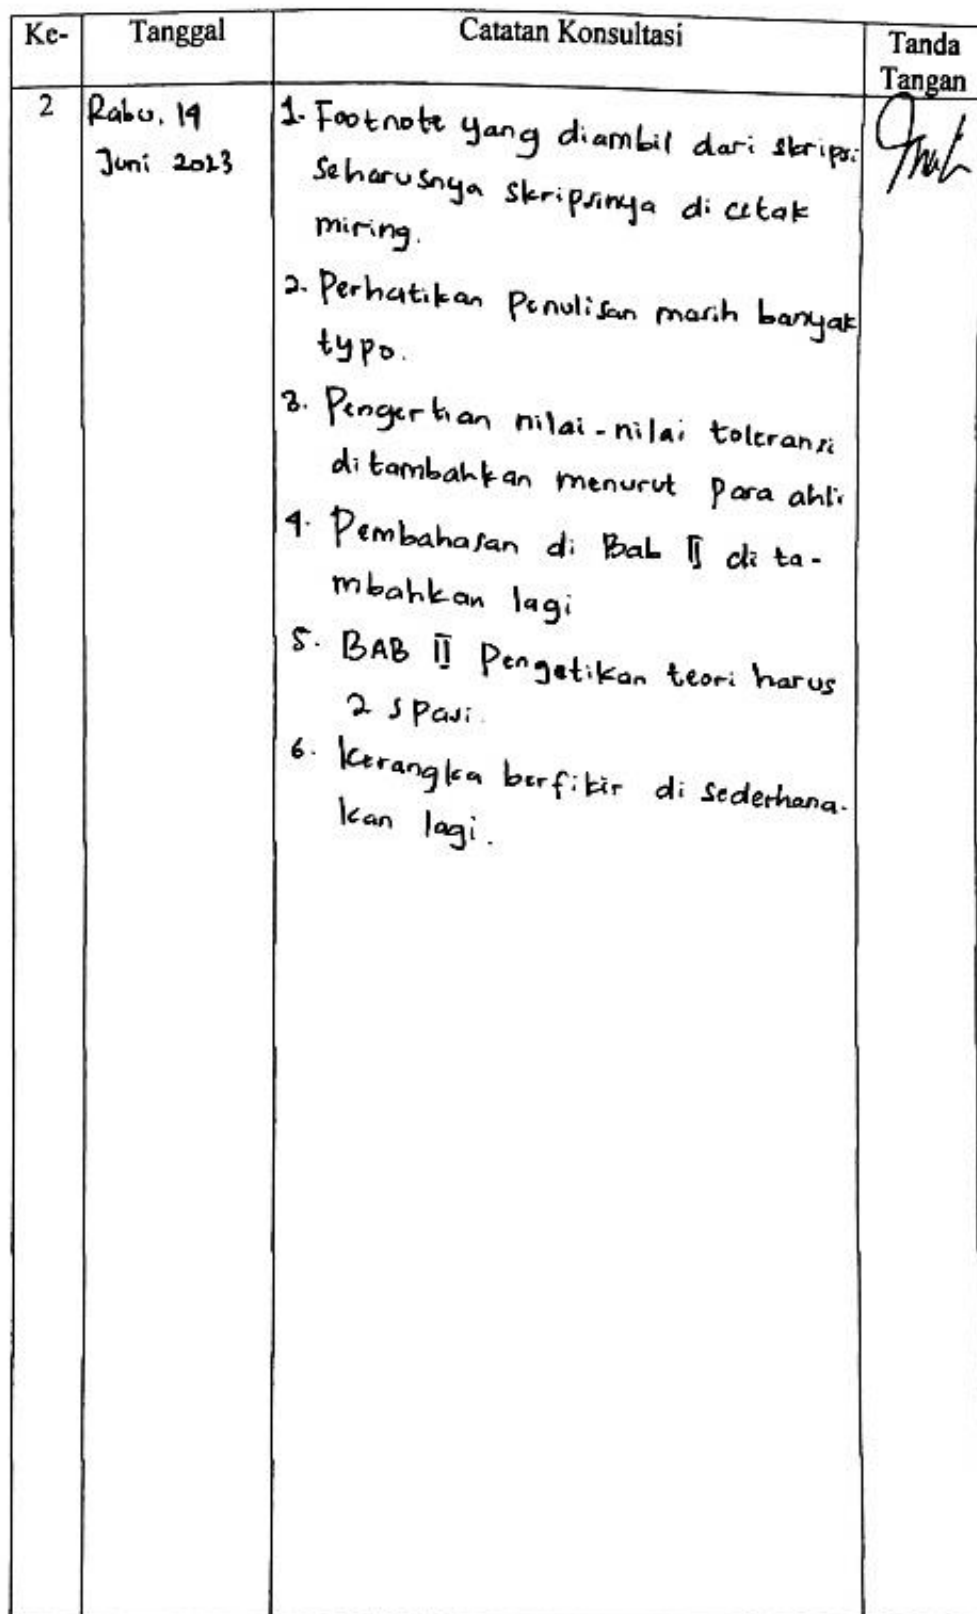 Ke- Tanggal Catatan Konsultasi Tanda Tangan
2 Rabu, 14 Juni 2023
1. Footnote yang diambil dari skripsi
seharusnya skripsinya di cetak
miring.
2. Perhatikan Penulisan masih banyak
typo.
3. Pengertian nilai-nilai toleransi
ditambahkan menurut Para ahli
4. Pembahasan di Bab II di ta-
mbahkan lagi
5. BAB II Pengetikan teori harus
2 spasi.
6. Kerangka berfikir di sederhana-
kan lagi.